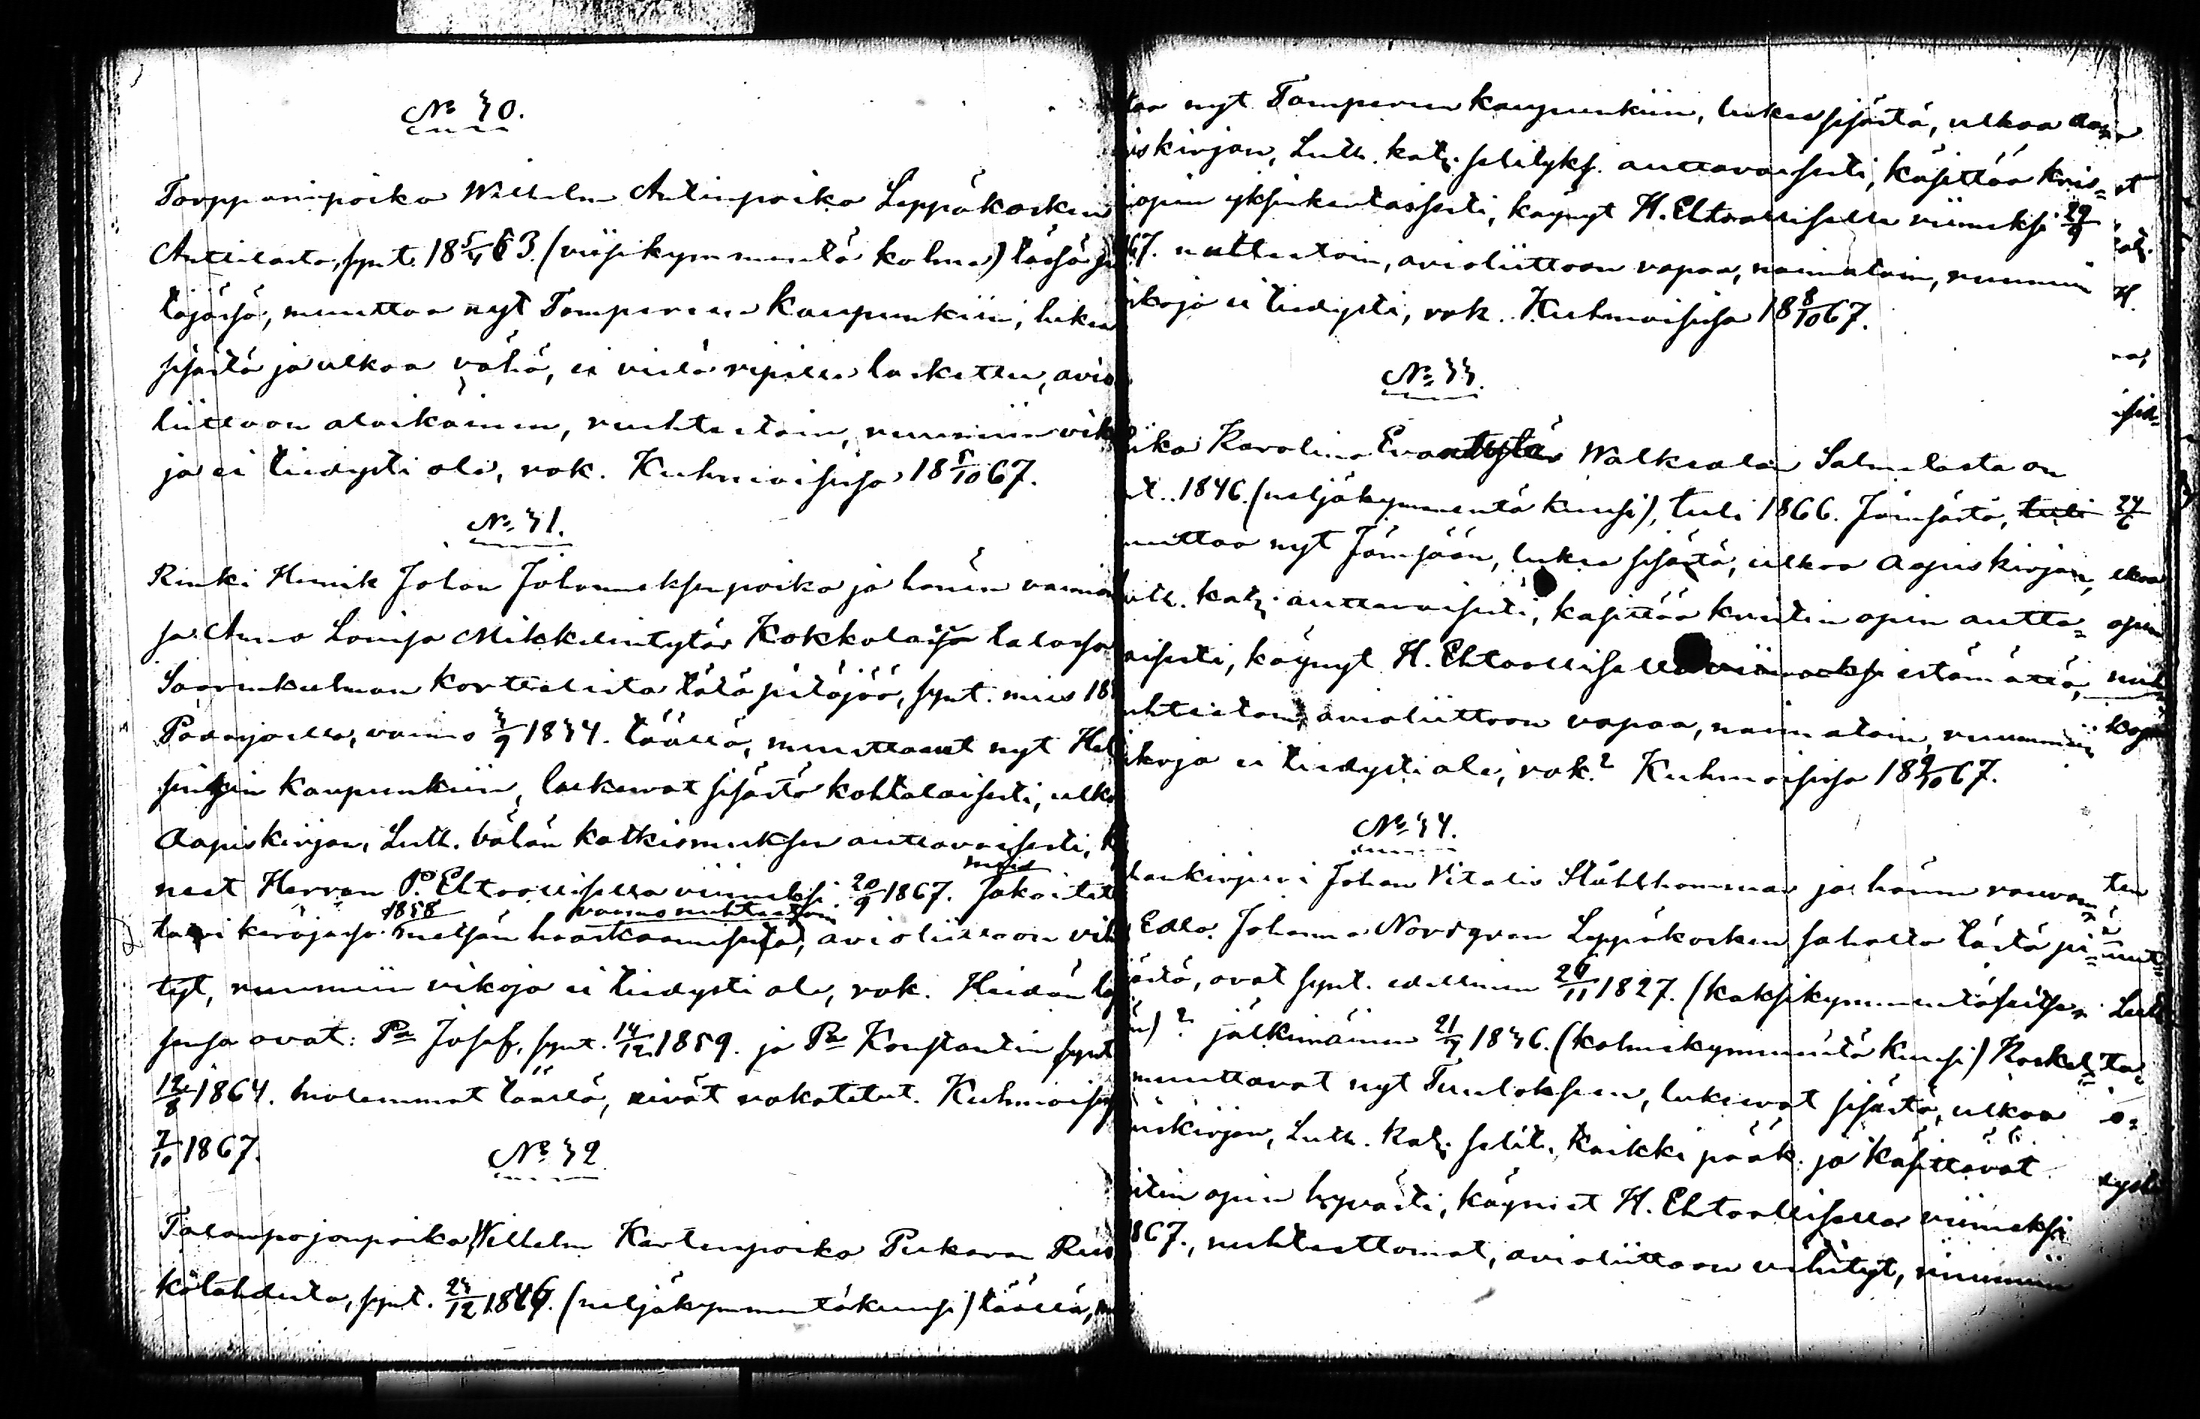 № 30.
Torpparinpoika Wilhelm Antinpoika Leppäkosken
Anttilasta, synt. 18 5/4 53. (viisikymmentä kolme) tässä pi
täjässä, muuttaa nyt Tampereen kaupunkiin, lukee
sisästä ja ulkoa vähä, ei vielä ripille laskettu, avio
liittoon alaikäinen, nuhteetoin, ruumiin vik
ja ei tiedysti ole, rok. Kuhmoisissa 18 5/10 67.
№ 31.
Renki Henrik Johan Johanneksenpoika ja hänen vaimon
sa Anna Lovisa Mikkelintytär Kokkolaisa talossa
Saarenkulman korttelista tätä pitäjää, synt. mies 18
Padasjoella, vaimo 3/9 1834. täällä, muuttavat nyt Hel
singin kaupunkiin, lukewat sisästä kohtalaisesti, ulko
Aapiskirjan, Luth. vähän katkismuksen auttavaisesti, k
neet Herran P. Ehtoollisella viimeksi 20/9 1867. mies Sakoitet
talvi käräjässä 1858 metsän haaskaamisesta, vaimo nuhteetoin, avioliittoon vih
tyt, ruumiin vikoja ei tiedysti ole, rok. Heidän la
sensa ovat: Pa Josef, synt. 14/12 1859. ja Pa Konstantin synt
12/8 1864. molemmat täällä, eivät rokotetut. Kuhmoisis
7/10 1867.
№ 32
Talonpojanpoika Wilhelm Kartenpoika Pukaran
kölahdesta, synt. 23/12 1846. (neljäkymmentäkuusi) täällä, m
taa nyt Tampereen kaupunkiin, lukee sisästä, ulkoa Aa
iskirjan, Luth. kat. selityks. auttavaisesti, käsittää kris-
opin yksinkertaisesti, käynyt H. Ehtoollisella viimeksi 29/9
67. nuhteetoin, avioliittoon vapaa, naimatoin, ruumiin
ikoja ei tiedysti, rok. Kuhmoisissa 18 8/10 67.
№ 33.
iika Karolina Evantytär Walkealan Salmelasta on
nt. 1846. (neljäkymmentä kuusi), tuli 1866. Jämsästä, tuli
uuttaa nyt Jämsään, lukee sisästä, ulkoa Aapiskirjan,
uth. kat. auttavaisesti, käsittää kristin opin autta-
aisesti, käynyt H. Ehtoollisella viimeksi estämättä,
uhteetoin, avioliittoon vapaa, naimatoin, ruumiin
ikoja ei tiedysti ole, rok. Kuhmoisissa 18 9/10 67.
№ 34.
Johan Vitalis Stålhammar ja hänen rouvan-
Edla Johanna Norrgren Leppäkosken sahalta tästä pi-
ästä, ovat synt. edellinen 26/11 1827. (kaksikymmentäseitse-
än) jälkimäinen 21/7 1836. (kolmekymmentä kuusi)
muuttavat nyt Tuulokseen, lukewat sisästä, ulkoa
iskirjan, Luth. Kat. selit. kaikki pääk. ja käsittävät
istin opin hyvästi, käyneet H. Ehtoollisella viimeksi
867., nuhteettomat, avioliittoon vihityt, ruumiin